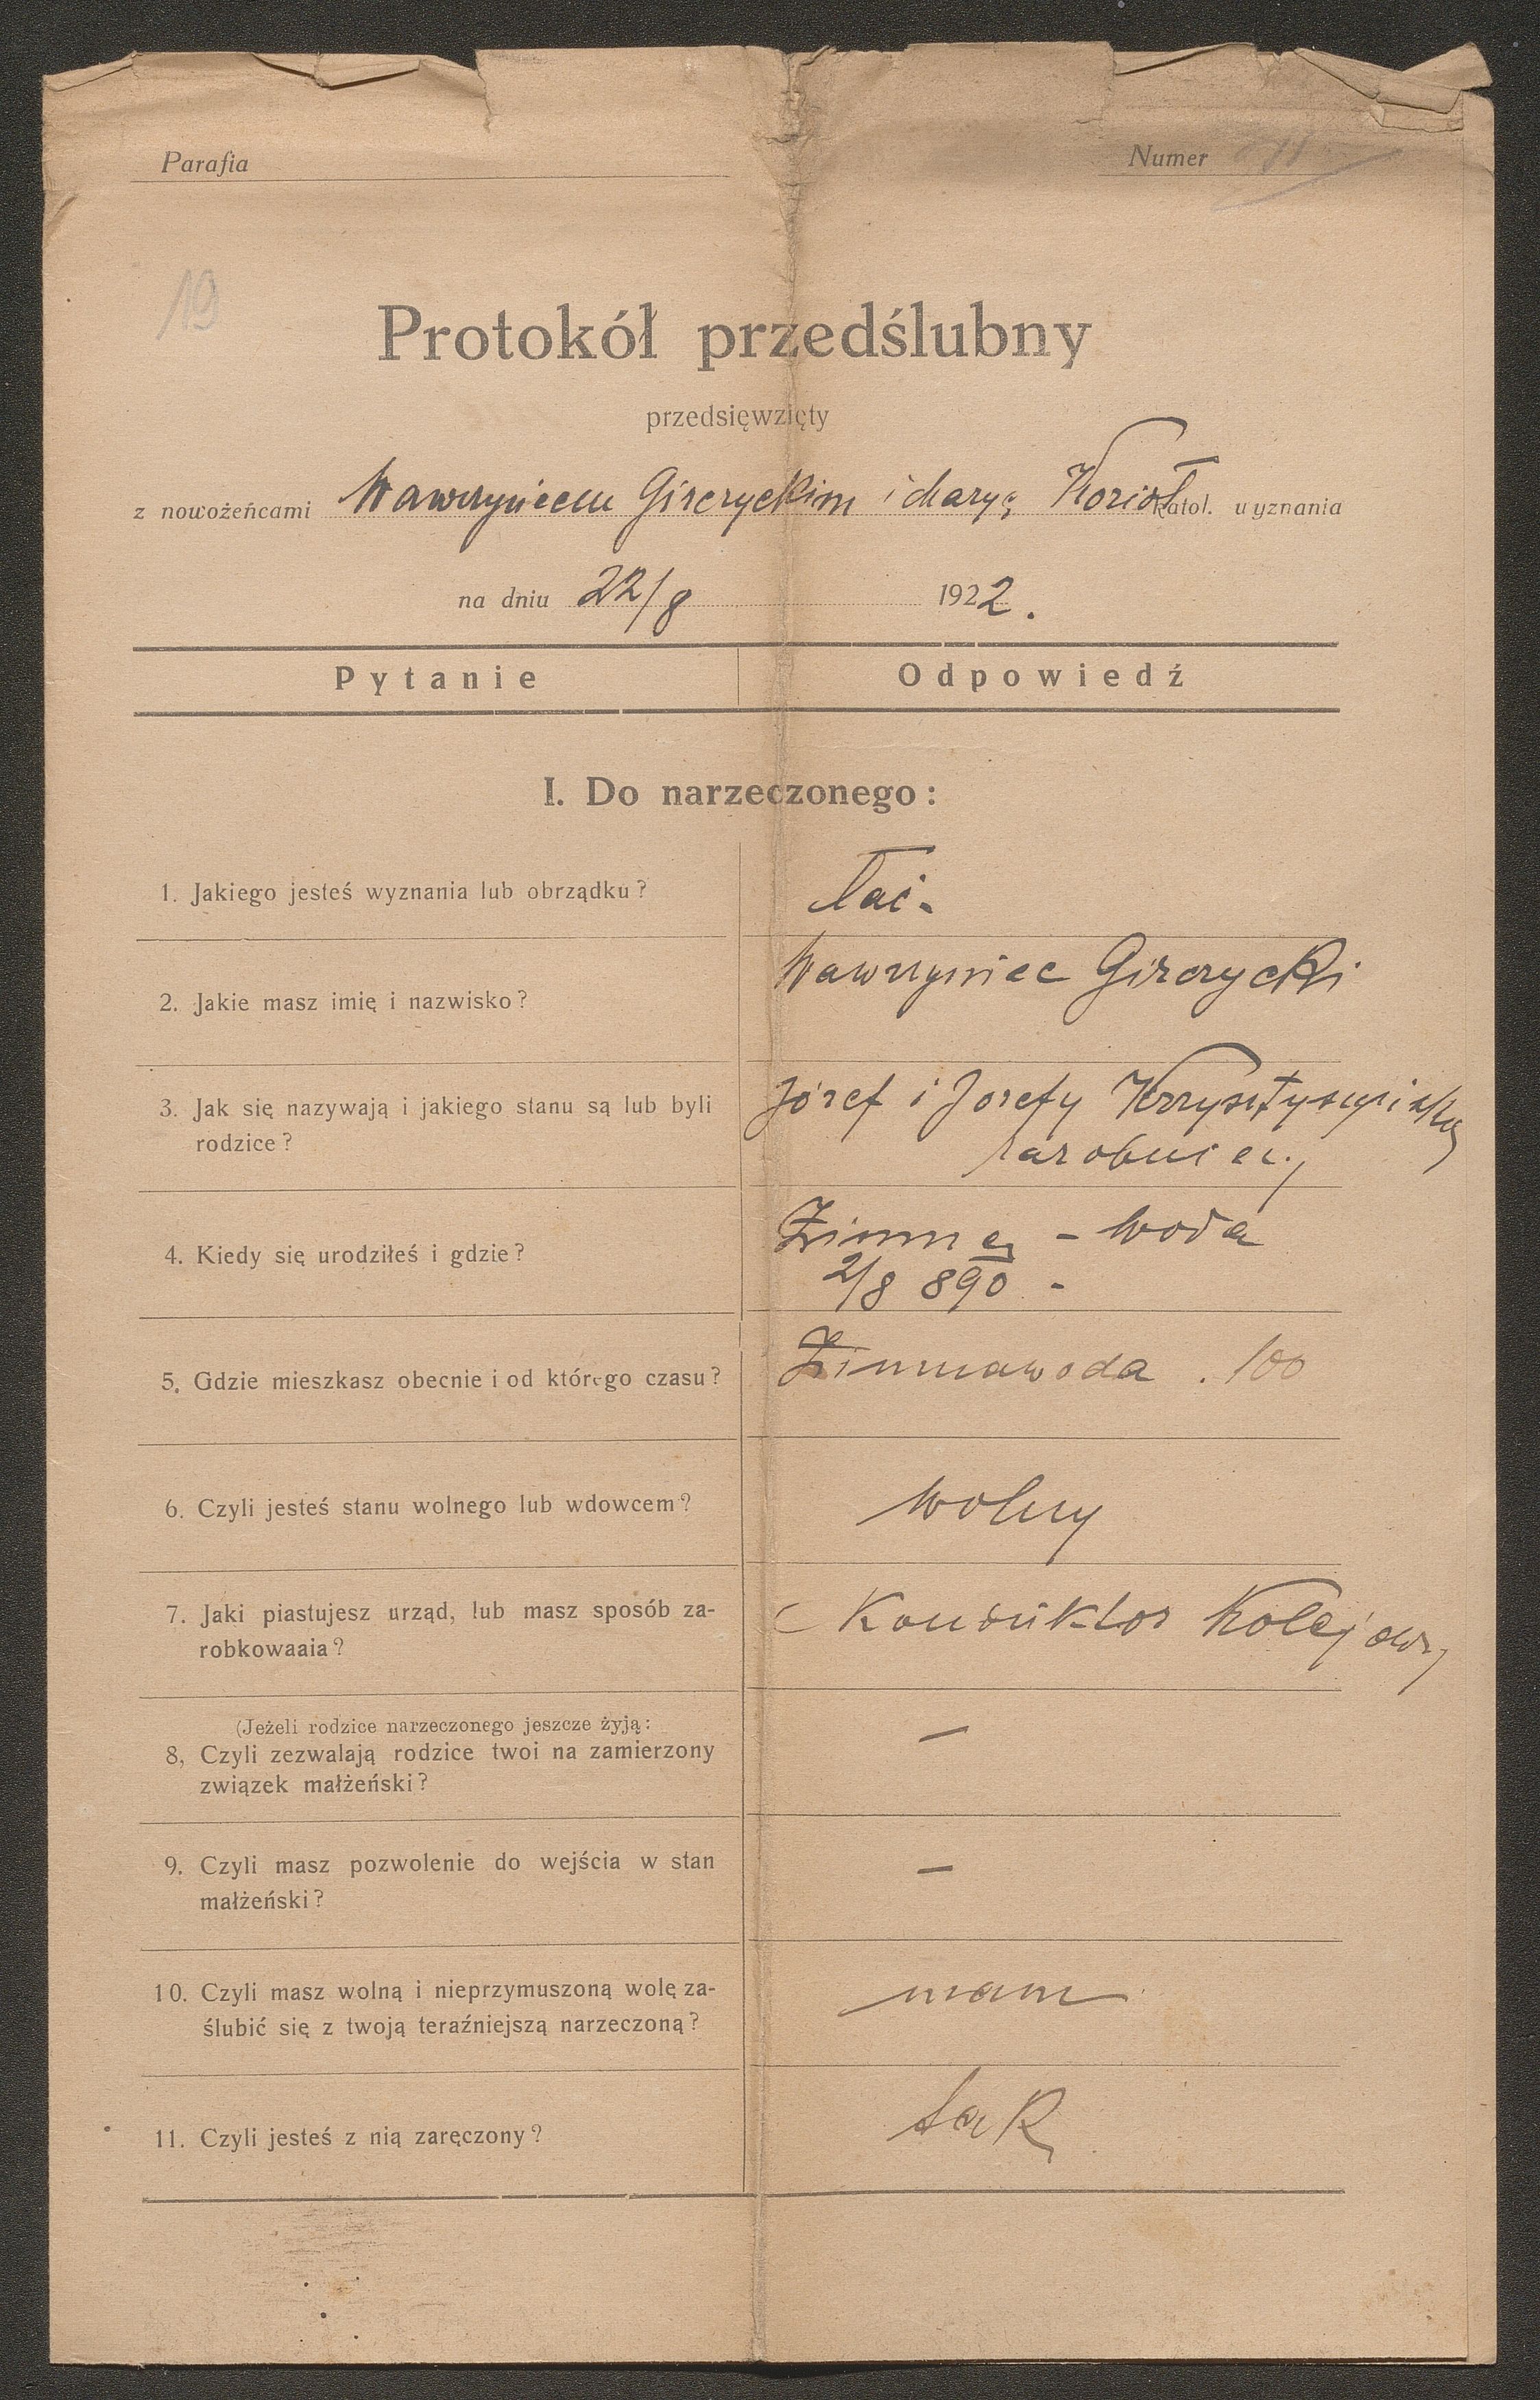 Parafia
Numer
19
Protokół przedślubny
przedsięwzięty
z nowożeńcami Wawrzyńcem Girzyckim i Maryą Kozioł katol. wyznania
na dniu 22/8 1922.
Pytanie Odpowiedź
I. Do narzeczonego:
1. Jakiego jesteś wyznania lub obrządku?
łać.
2. Jakie masz imię i nazwisko?
Wawrzyniec Girzycki
3. Jak się nazywają i jakiego stanu są lub byli
rodzice?
Józef i Józefy
zarobnicy
4. Kiedy się urodziłeś i gdzie?
Zimna – Woda
2/8 890 -
5. Gdzie mieszkasz obecnie i od którego czasu?
Zimnawoda . 100
6. Czyli jesteś stanu wolnego lub wdowcem?
wolny
7. Jaki piastujesz urząd, lub masz sposób za-
robkowaaia?
Konduktor Kolejowy
(Jeżeli rodzice narzeczonego jeszcze żyją:
8, Czyli zezwalają rodzice twoi na zamierzony
związek małżeński?
–
9. Czyli masz pozwolenie do wejścia w stan
małżeński?
–
10. Czyli masz wolną i nieprzymuszoną wolę za-
ślubić się z twoją teraźniejszą narzeczoną?
mam
11. Czyli jesteś z nią zaręczony?
tak